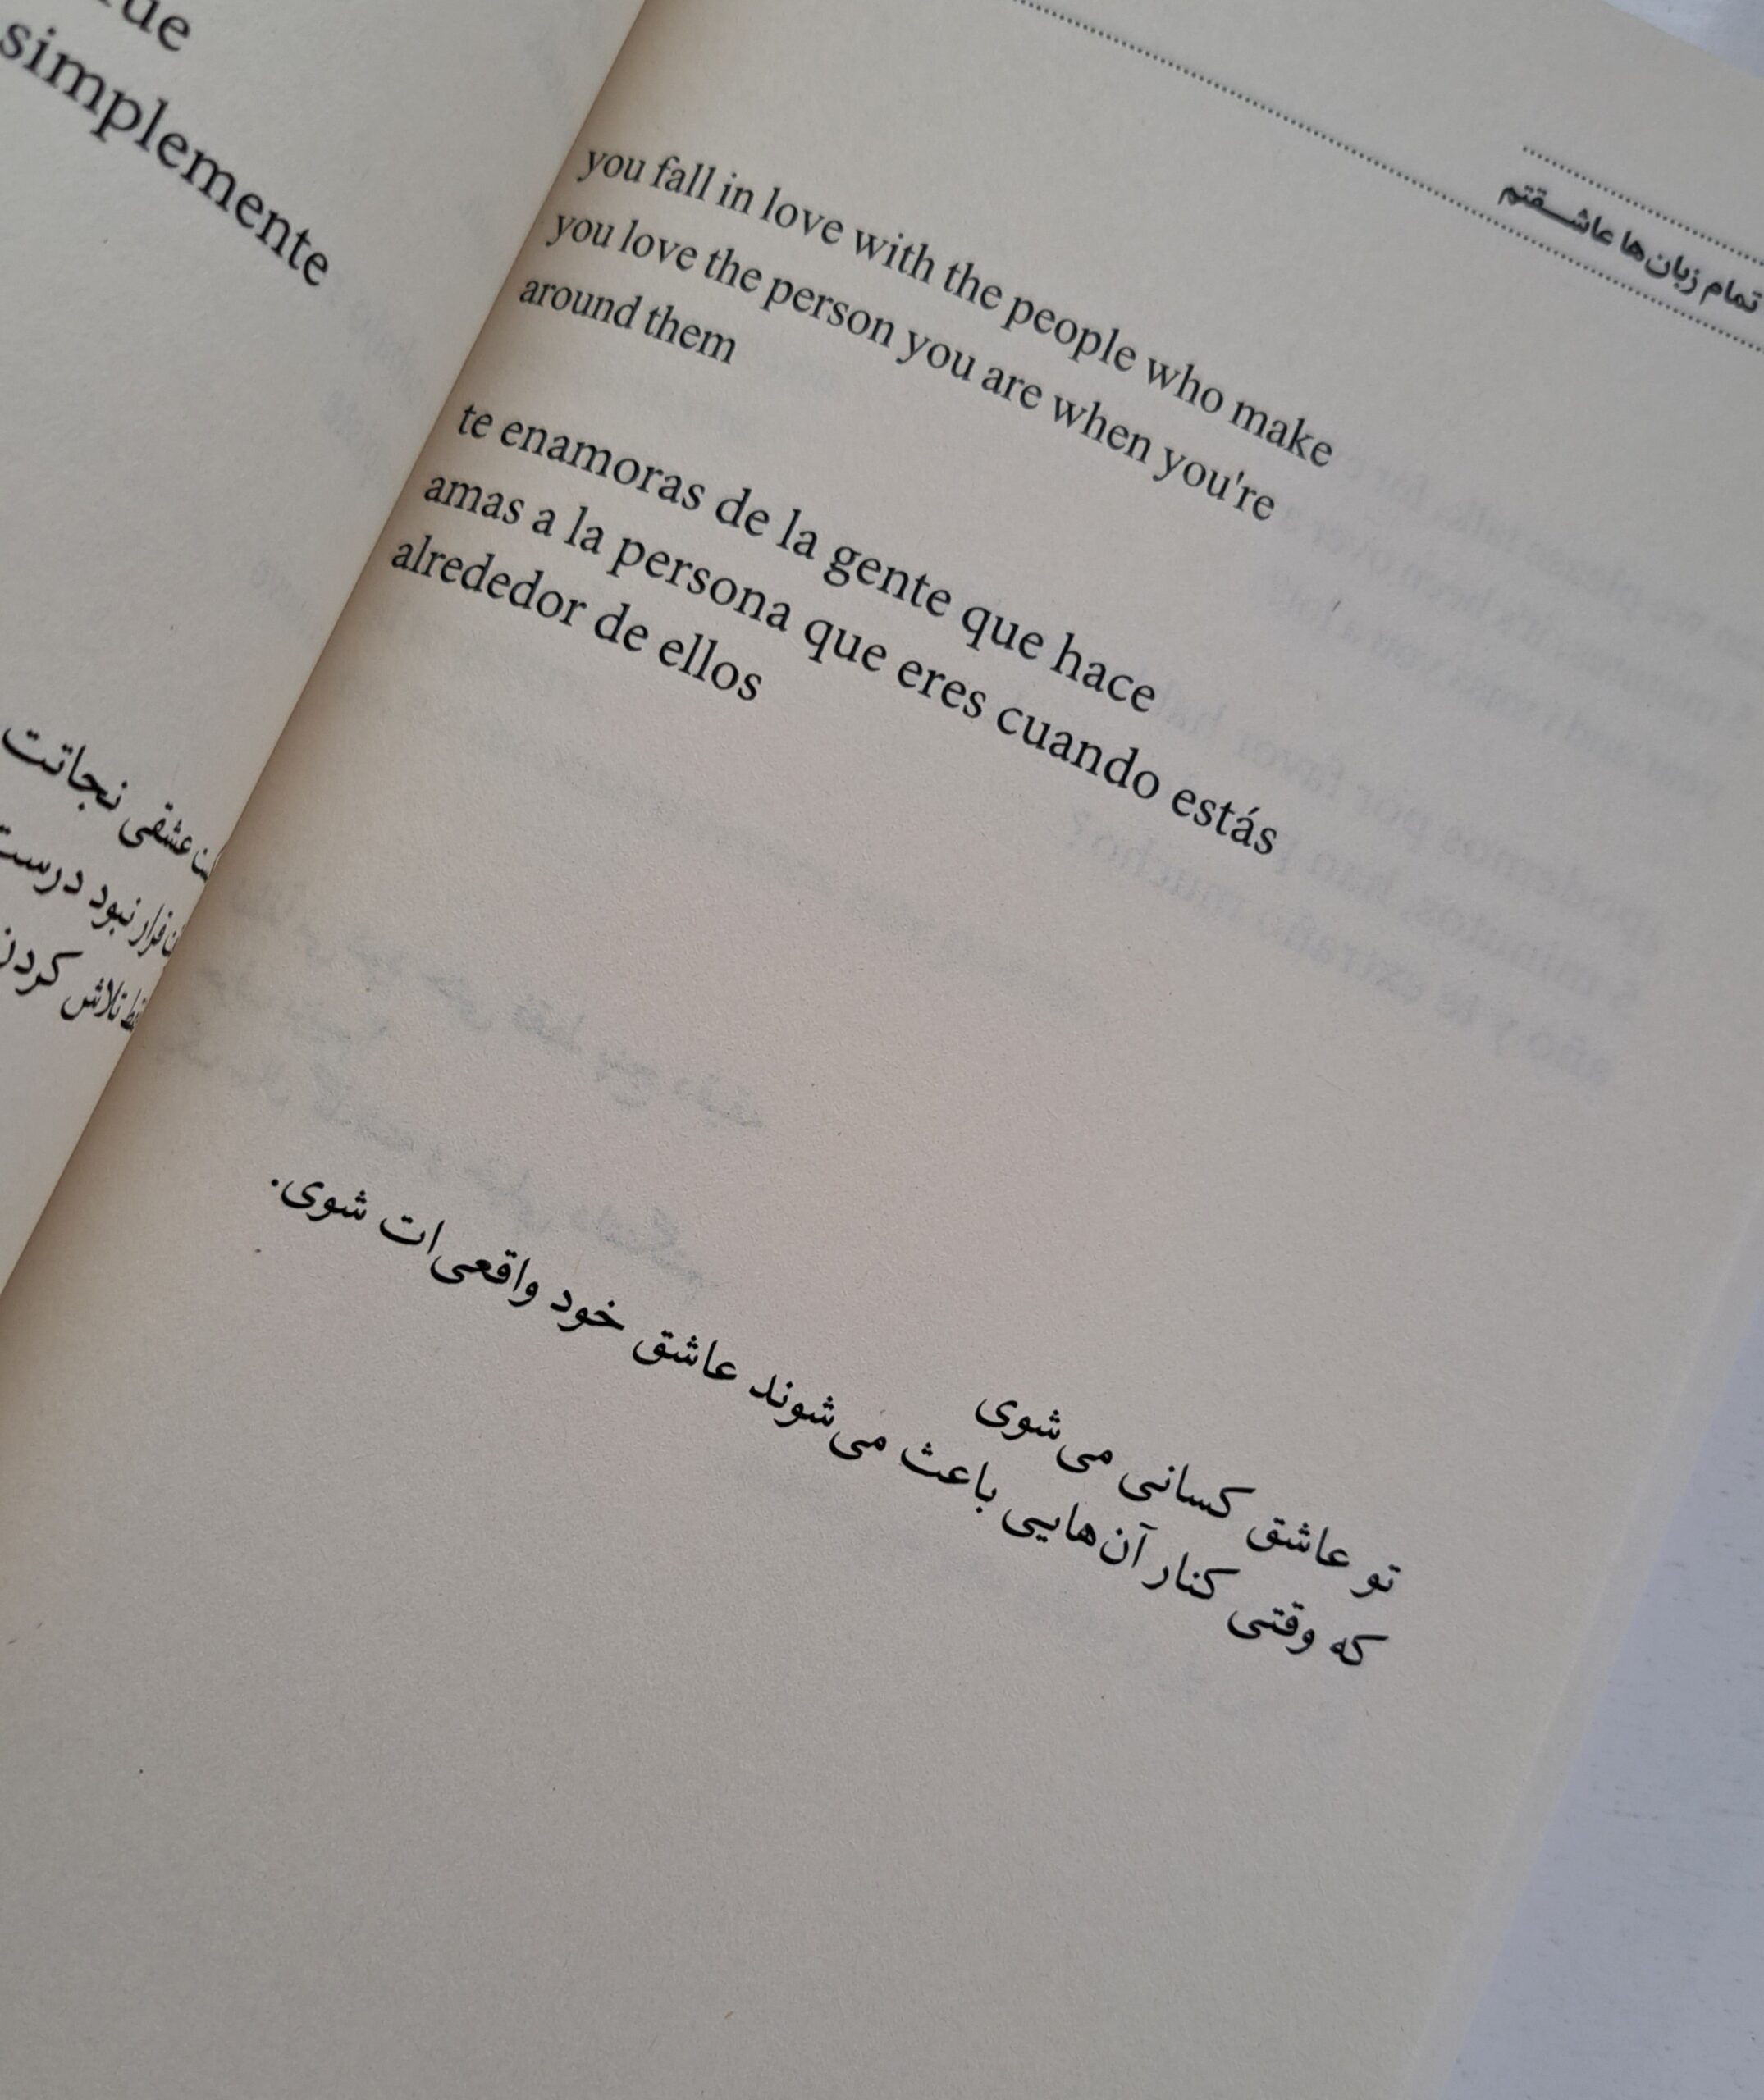 simplemente
نجاتت
عشقی
نبود درست
تلاش کردن
تمام زبان‌ها عاشقتم
you fall in love with the people who make
you love the person you are when you're
around them
te enamoras de la gente que hace
amas a la persona que eres cuando estás
alrededor de ellos
تو عاشق کسانی می‌شوی
که وقتی کنار آن‌هایی باعث می‌شوند عاشق خود واقعی‌ات شوی.